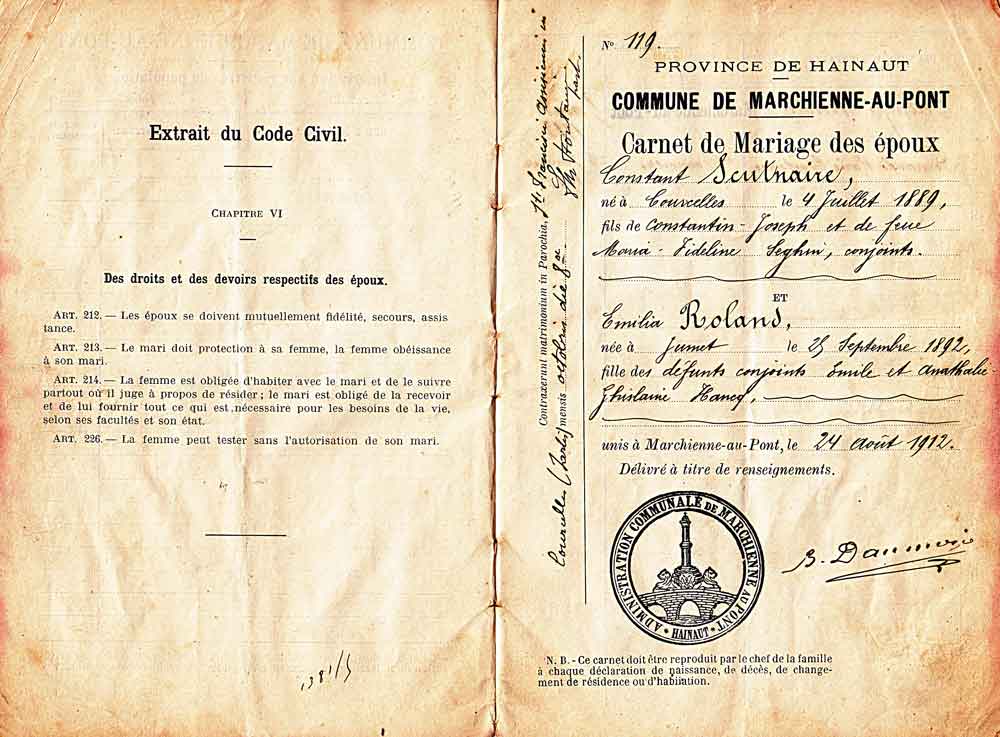 Extrait du Code Civil.
CHAPITRE VI
Des droits et des devoirs respectifs des époux.
ART. 212. — Les époux se doivent mutuellement fidélité, secours, assis
tance.
ART. 213. — Le mari doit protection à sa femme, la femme obéissance
à son mari.
ART. 214. — La femme est obligée d'habiter avec le mari et de le suivre
partout où il juge à propos de résider ; le mari est obligé de la recevoir
et de lui fournir tout ce qui est nécessaire pour les besoins de la vie,
selon ses facultés et son état.
ART. 226. — La femme peut tester sans l'autorisation de son mari.
Contraxerunt matrimonium in Parochia, Sti Francisci
Courcelles mensis octobris die 8a
N° 119.
PROVINCE DE HAINAUT
COMMUNE DE MARCHIENNE-AU-PONT
Carnet de Mariage des époux
Constant Scutnaire,
né à Courcelles le 4 Juillet 1889,
fils de Constantin-Joseph et de feue
Maria-Fideline Seghin, conjoints.
ET
Emilia Roland,
née à Jumet le 25 Septembre 1892,
fille des défunts conjoints Emile et Anathalie-
Ghislaine Hancq,
unis à Marchienne-au-Pont, le 24 août 1912.
Délivré à titre de renseignements.
ADMINISTRATION COMMUNALE DE MARCHIENNE AU PONT
HAINAUT
N. B. - Ce carnet doit être reproduit par le chef de la famille
à chaque déclaration de naissance, de décès, de change-
ment de résidence ou d'habitation.